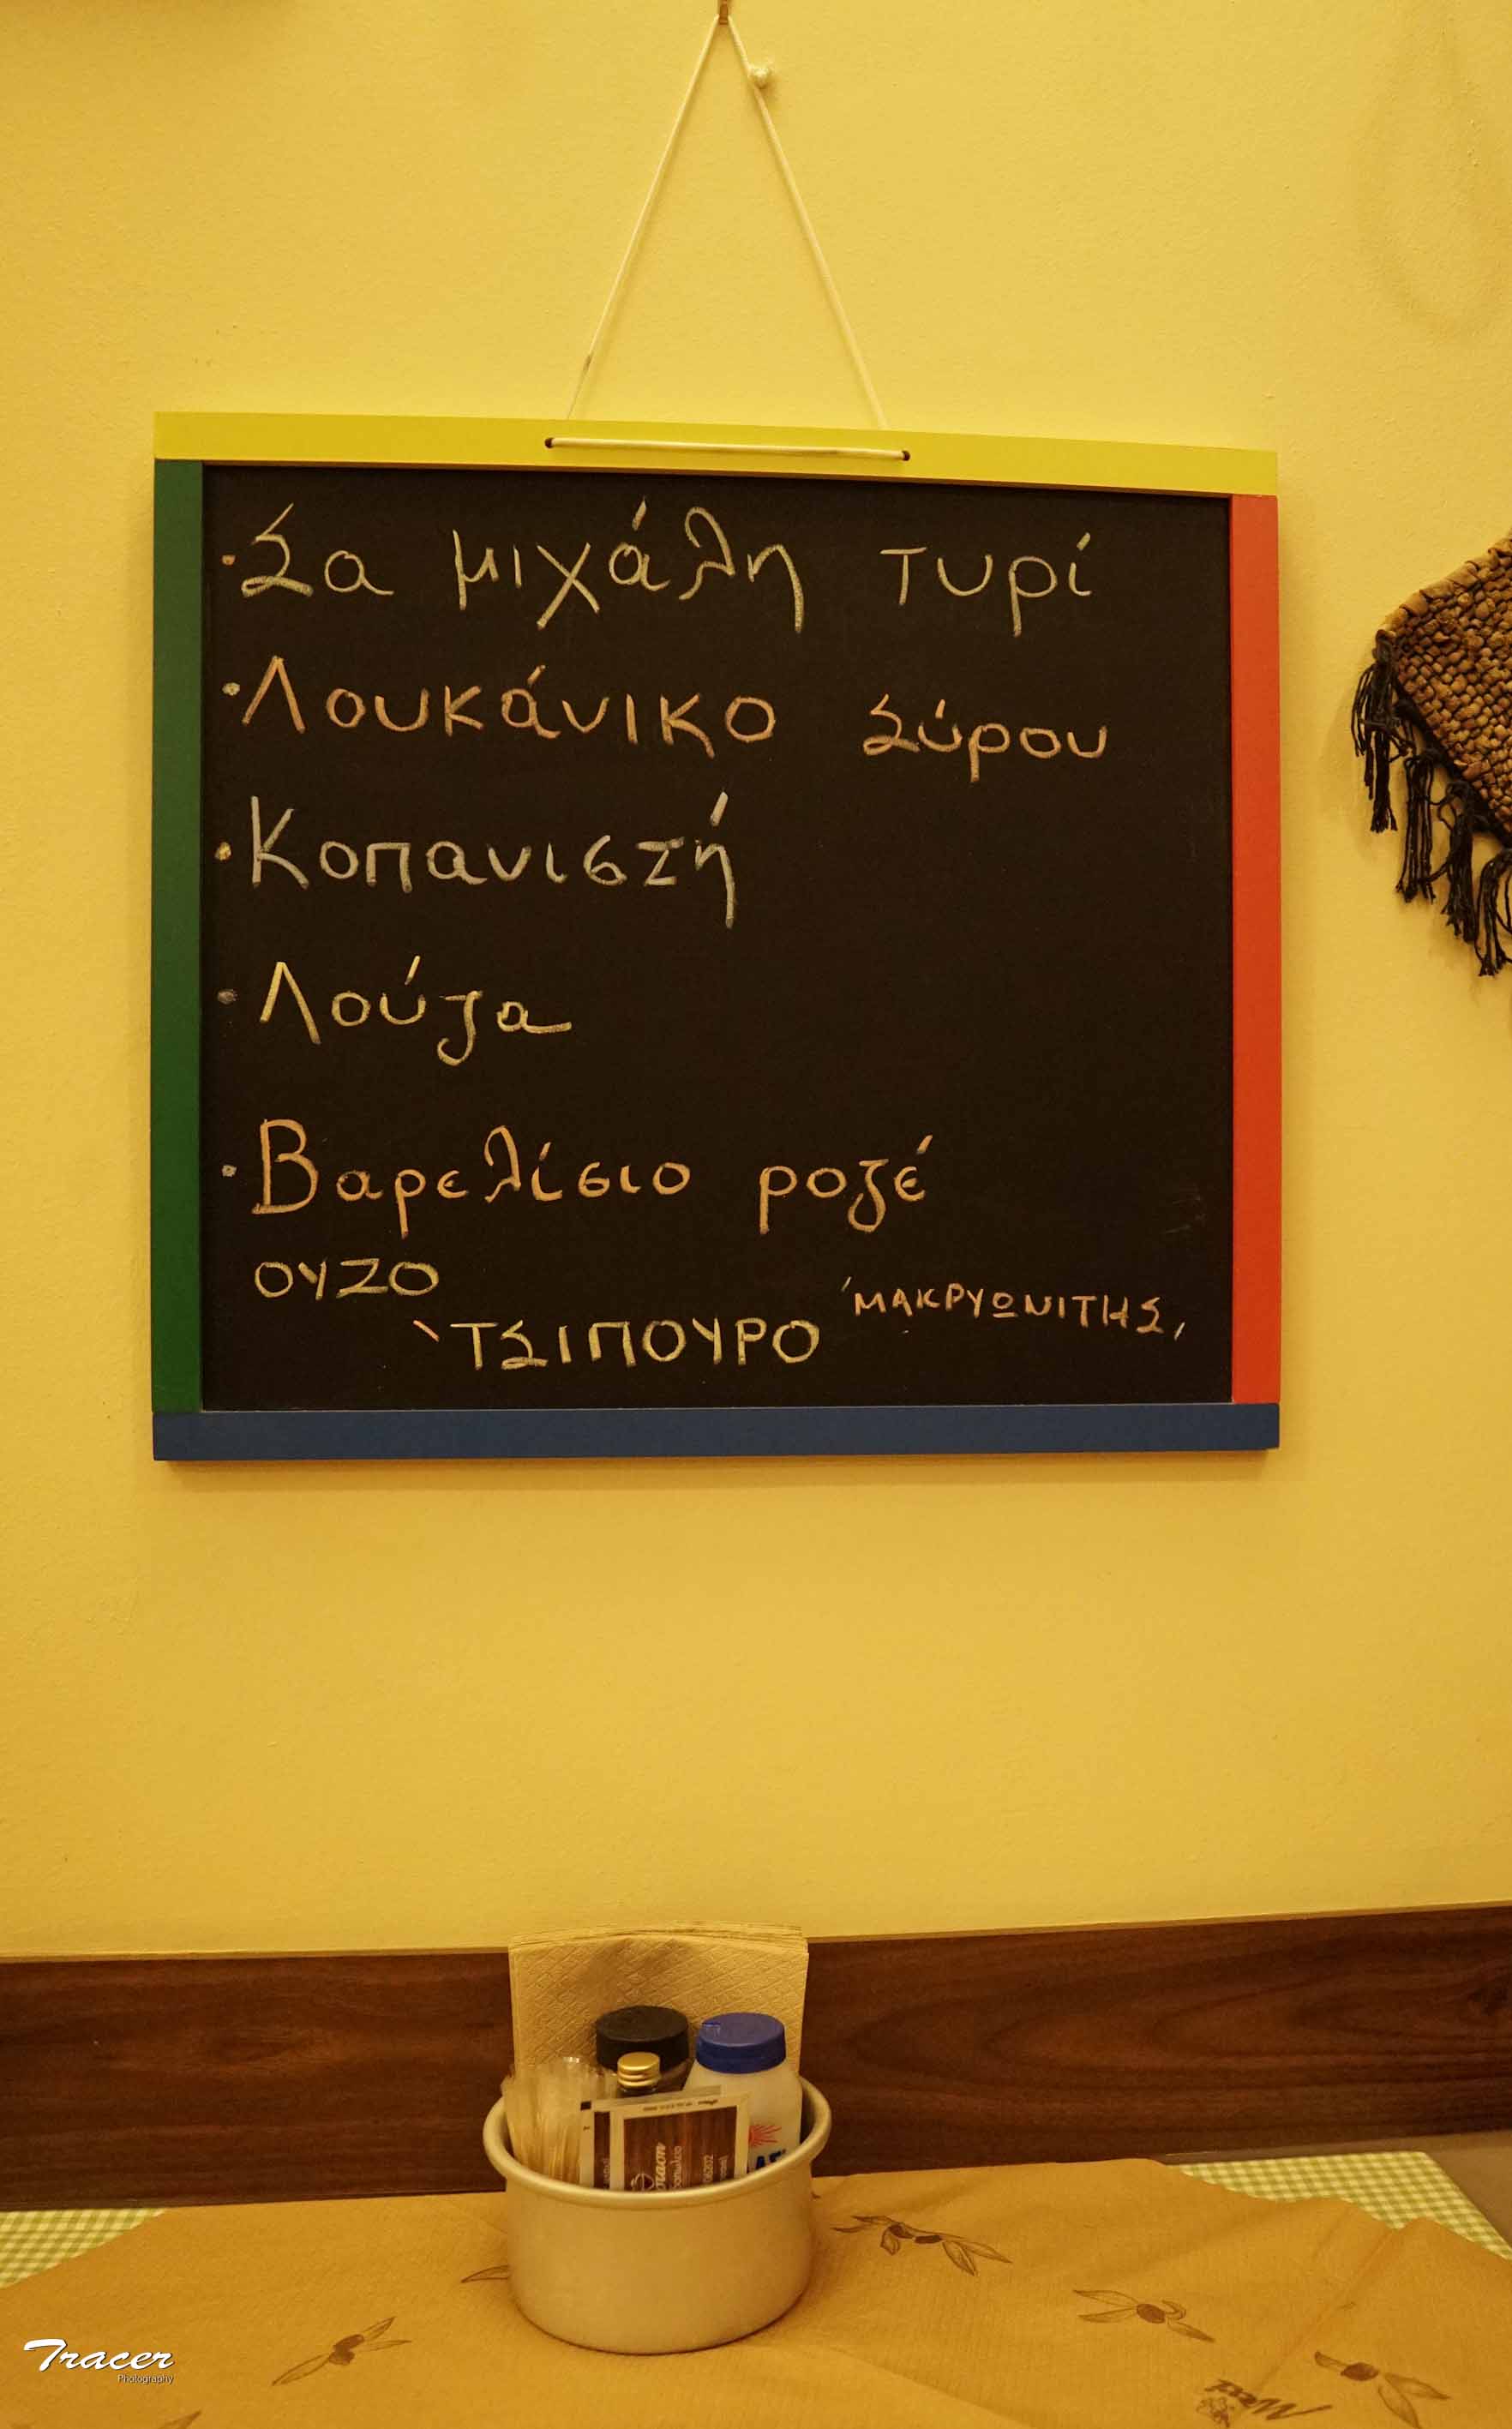 ·Σα μιχάλη τυρί
·Λουκάνικο Σύρου
·Κοπανιστή
·Λούζα
·Βαρελίσιο ροζέ
ΟΥΖΟ
ΤΣΙΠΟΥΡΟ 'ΜΑΚΡΥΩΝΙΤΗΣ,
Tracer
Photography